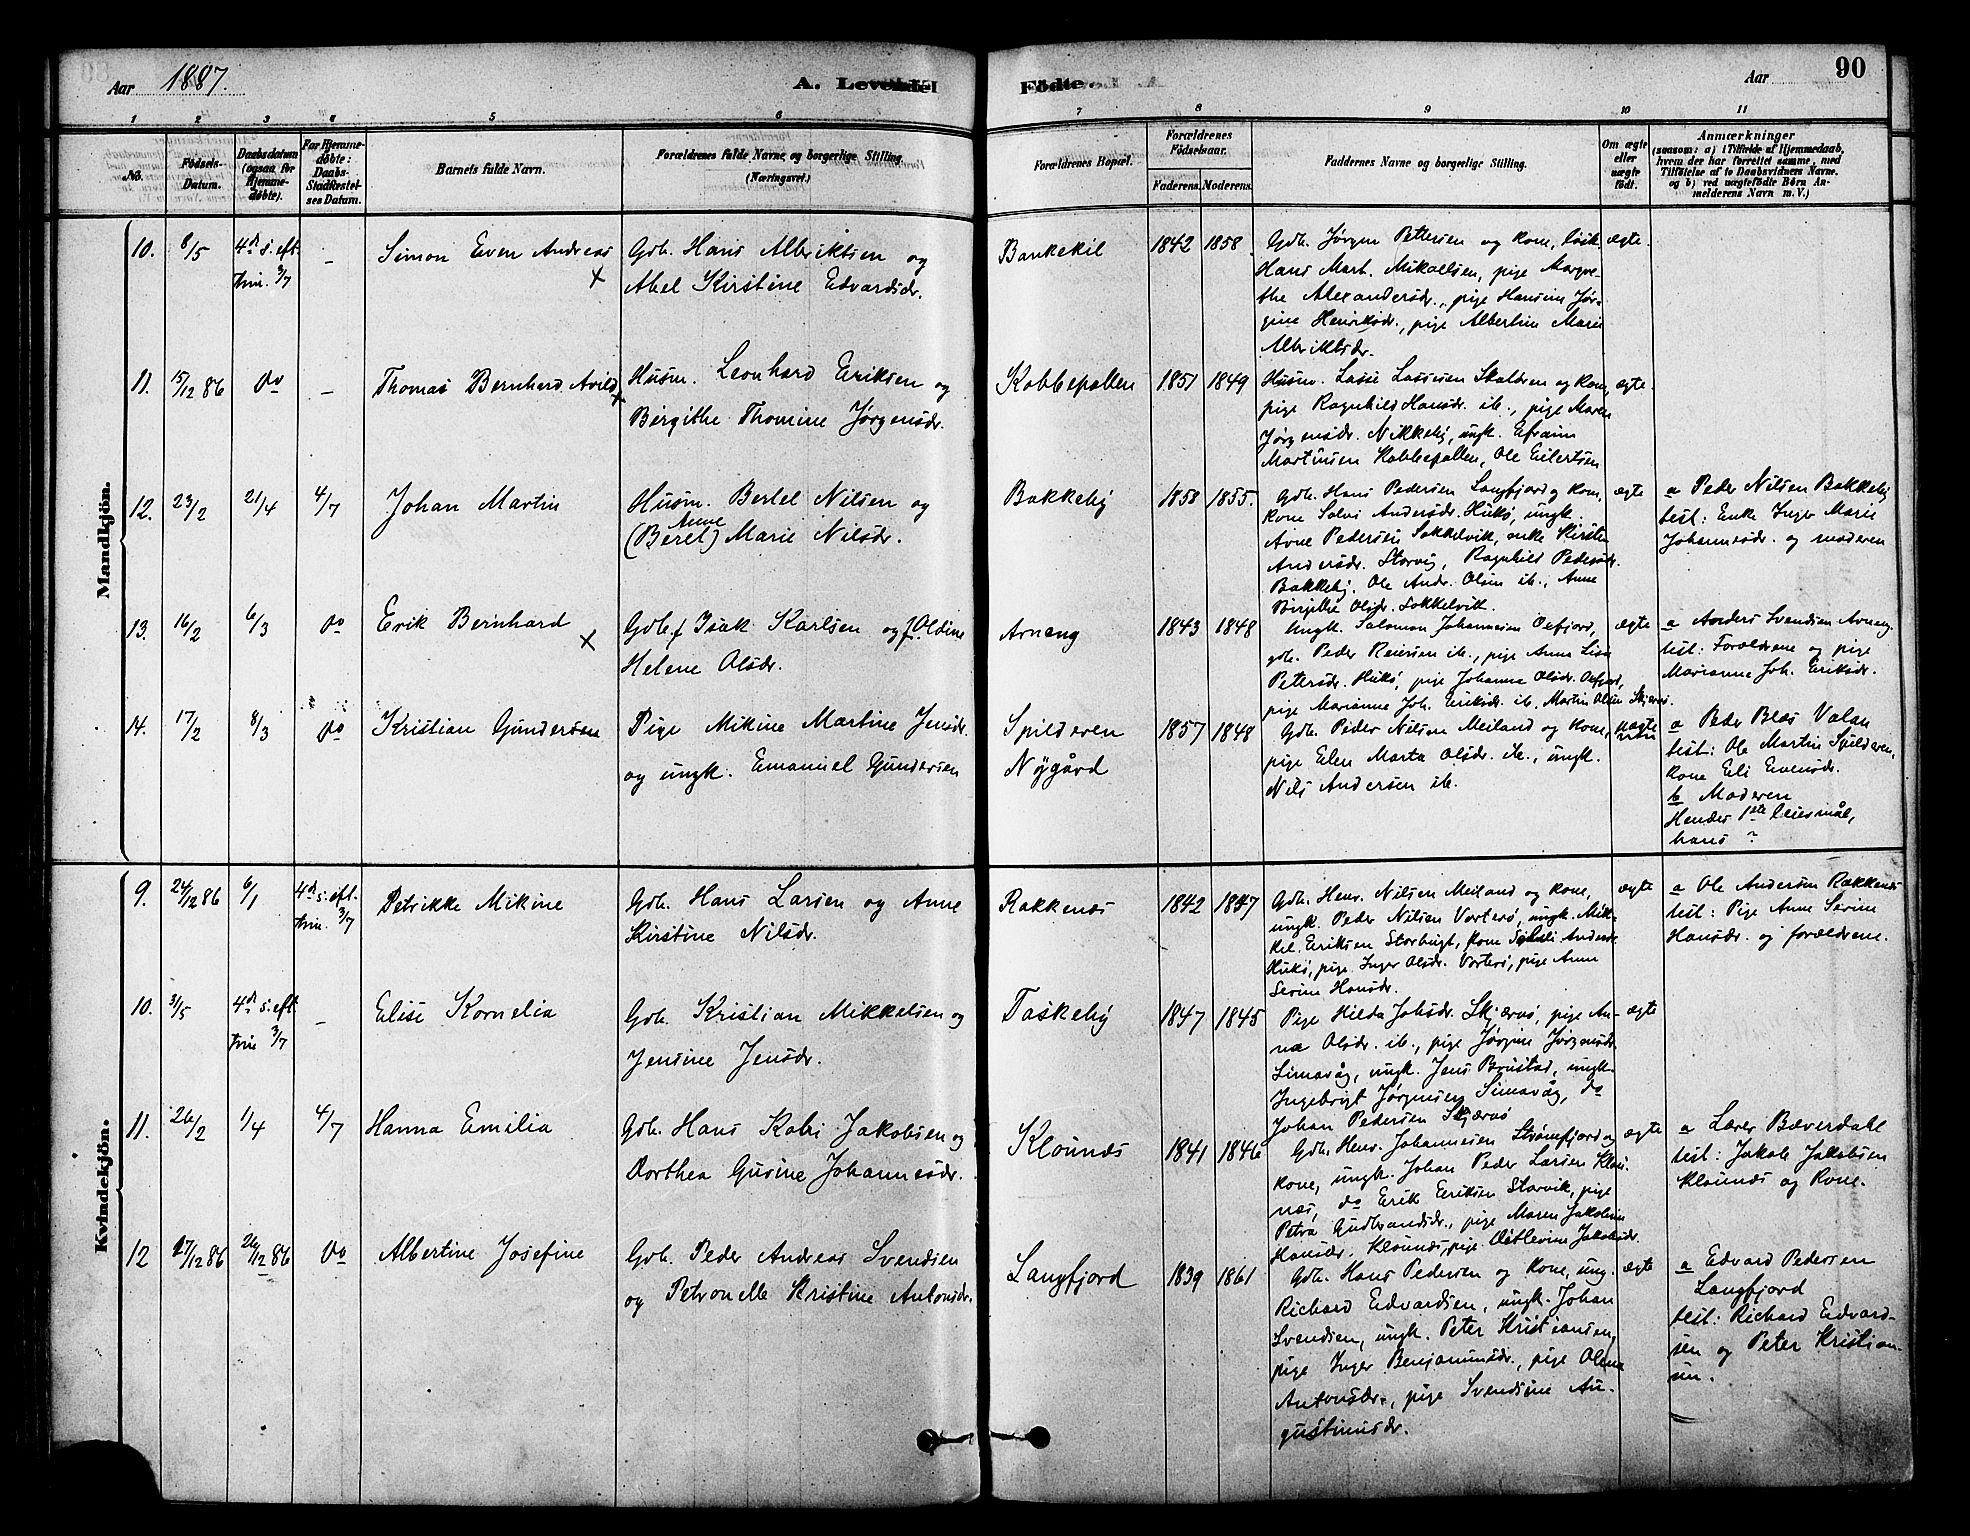 Aar 1887.
A. Levende
Fødte.
Aar
90
1 2 3 4 5 6 7 8 9 10 11
No.
Fødsels-Datum.
Daabsdatum (ogsaa for Hjemmedøbte).
For Hjemmedøbte: Daabs-Stadfæstelses Datum.
Barnets fulde Navn.
Forældrenes fulde Navne, og borgerlige Stilling. (Næringsvei.)
Forældrenes Bopæl.
Forældrenes Fødselsaar.
Faderens. Moderens.
Faddernes Navne og borgerlige Stilling.
Om ægte eller uægte født.
Anmærkninger (saasom: a) i Tilfælde af Hjemmedaab, hvem der har forrettet samme, med Tilføielse af to Daabsvidners Navne. og b) ved uægtefødte Børn Anmelderens Navn m. V.)
Mandkjön.
10. 8/5 4de s. eft. trin. 3/7 – Simon Even Andreas +
Gdb. Hans Albriktsen og
Abel Kirstine Edvardsdr.
Bankekil 1842 1858.
Gdb. Jørgen Pettersen og kone,
Hans Mart. Mikaelsen, pige Margre-
the Alexandersdr., pige Hansine Jør-
gine Henriksdr., pige Albertine Marie
Albriktsdr.
ægte.
11. 15/12 86 do – Thomas Bernhard Avild +
Husm. Leonhard Eriksen og
Birgithe Thomine Jørgensdr.
Kobbepollen 1851 1849
Husm. Lasse Lassesen Skaldren og kone,
pige Ragnhild Hansdr. ib., pige Maren
Jørgensdr. Nikkeby, ungk. Efraim
Martinsen Kobbepollen, Ole Eilertsen
ægte.
12. 23/2 21/4 4/7 Johan Martin
Husm. Bertel Nilsen og
Anne
(Beret) Marie Nilsdr.
Bakkeby 1858 1855.
Gdb. Hans Pedersen Langfjord og kone,
kone Solvi Andersdr. Hukø, ungk.
Arne Pedersen Sokkelvik, enke Kirsten
Andersdr. Storvig, Ragnhild Pedersdr.
Bakkeby, Ole Andr. Olsen ib., Anne
Birgithe Olsdr. Sokkelvik.
ægte
a Peder Nilsen Bakkeby
test: Enke Inger Marie
Johannesdr. og moderen
13. 16/2 6/3 do Erik Bernhard +
Gdb. f Isak Karlsen og f. Oldine
Helene Olsdr.
Arneng 1843 1848
Ungk. Salomon Johannesen Oxfjord,
gdb. Peder Reiersen ib., pige Anna Lisa
Petersdr. Hukø, pige Johanna Olsdr. Oxfjord,
pige Marianne Joh. Eriksdr. ib. Martin Olsen Skjervø.
ægte
a Anders Svendsen Arneng.
test: Forældrene og pige
Marianne Joh. Eriksdr.
14. 17/2 8/3 do Kristian Gundersen
Pige Mikine Martine Jensdr.
og ungk. Emanuel Gundersen
Spilderen
Nygård
1857 1848
Gdb. Peder Nilsen Meiland og kone,
pige Elen Marta Olsdr. ib., ungk.
Nils Andersen ib.
uægte
a Peder Blæs Valan
test: Ole Martin Spilderen,
kone Eli Evensdr.
b Moderen
Hendes 1ste leiermål,
hans ?
Kvindekjön.
9. 24/12 86 6/1 4de s. eft. trin. 3/7 Petrikke Mikine
Gdb. Hans Larsen og Anne
Kirstine Nilsdr.
Rakkenæs 1842 1847
Gdb. Henr. Nilsen Meiland og kone,
ungk. Peder Nilsen Vorterø, ungk. Mik-
kel Eriksen Storbugt, kone Andersdr.
Hukø, pige Inger Olsdr. Vorterø, pige Anne
Serine Hansdr.
ægte
a Ole Andersen Rakkenæs
test: Pige Anne Serine
Hansdr. og forældrene.
10. 3/5 4de s. eft. trin 3/7 – Elise Kornelia
Gdb. Kristian Mikkelsen og
Jensine Jensdr.
Taskeby 1847 1845
Pige Hilda Johsdr. Skjærvø, pige An-
na Olsdr. ib., pige Jørgine Jørgensdr.
Simavåg, ungk. Jens Brustad, ungk.
Ingebrigt Jørgensen Simavåg, do
Johan Pedersen Skjærvø
ægte
11. 26/2 1/4 4/7 Hanna Emilia
Gdb. Hans Kabi Jakobsen og
Dorthea Gusine Johannesdr.
Klounæs 1841 1846
Gdb. Henr. Johannesen Strømfjord og
kone, ungk. Johan Peder Larsen Klou-
næs, do Erik Eriksen Storvik, pige
Petra Gudbrandsdr., pige Maren Jakobine
Hansdr. Klounæs, pige Detlevine Jakobsdr.
ægte
a Lærer Bæverdahl
test: Jakob Jakobsen
Klounæs og Kone.
12 17/12 86 26/12 86 do Albertine Josefine
Gdb. Peder Andreas Svendsen
og Petronelle Kristine Antonsdr.
Langfjord 1839 1861
Gdb. Hans Pedersen og kone, ung.
Richard Edvardsen, ungk. Johan
Svendsen, ungk. Peter Kristiansen,
pige Inger Benjaminsdr., pige Olina
Antonsdr., pige Svendsine Au-
gustinusdr.
ægte
a Edvard Pedersen
Langfjord
test: Richard Edvard-
sen og Peter Kristian-
sen.